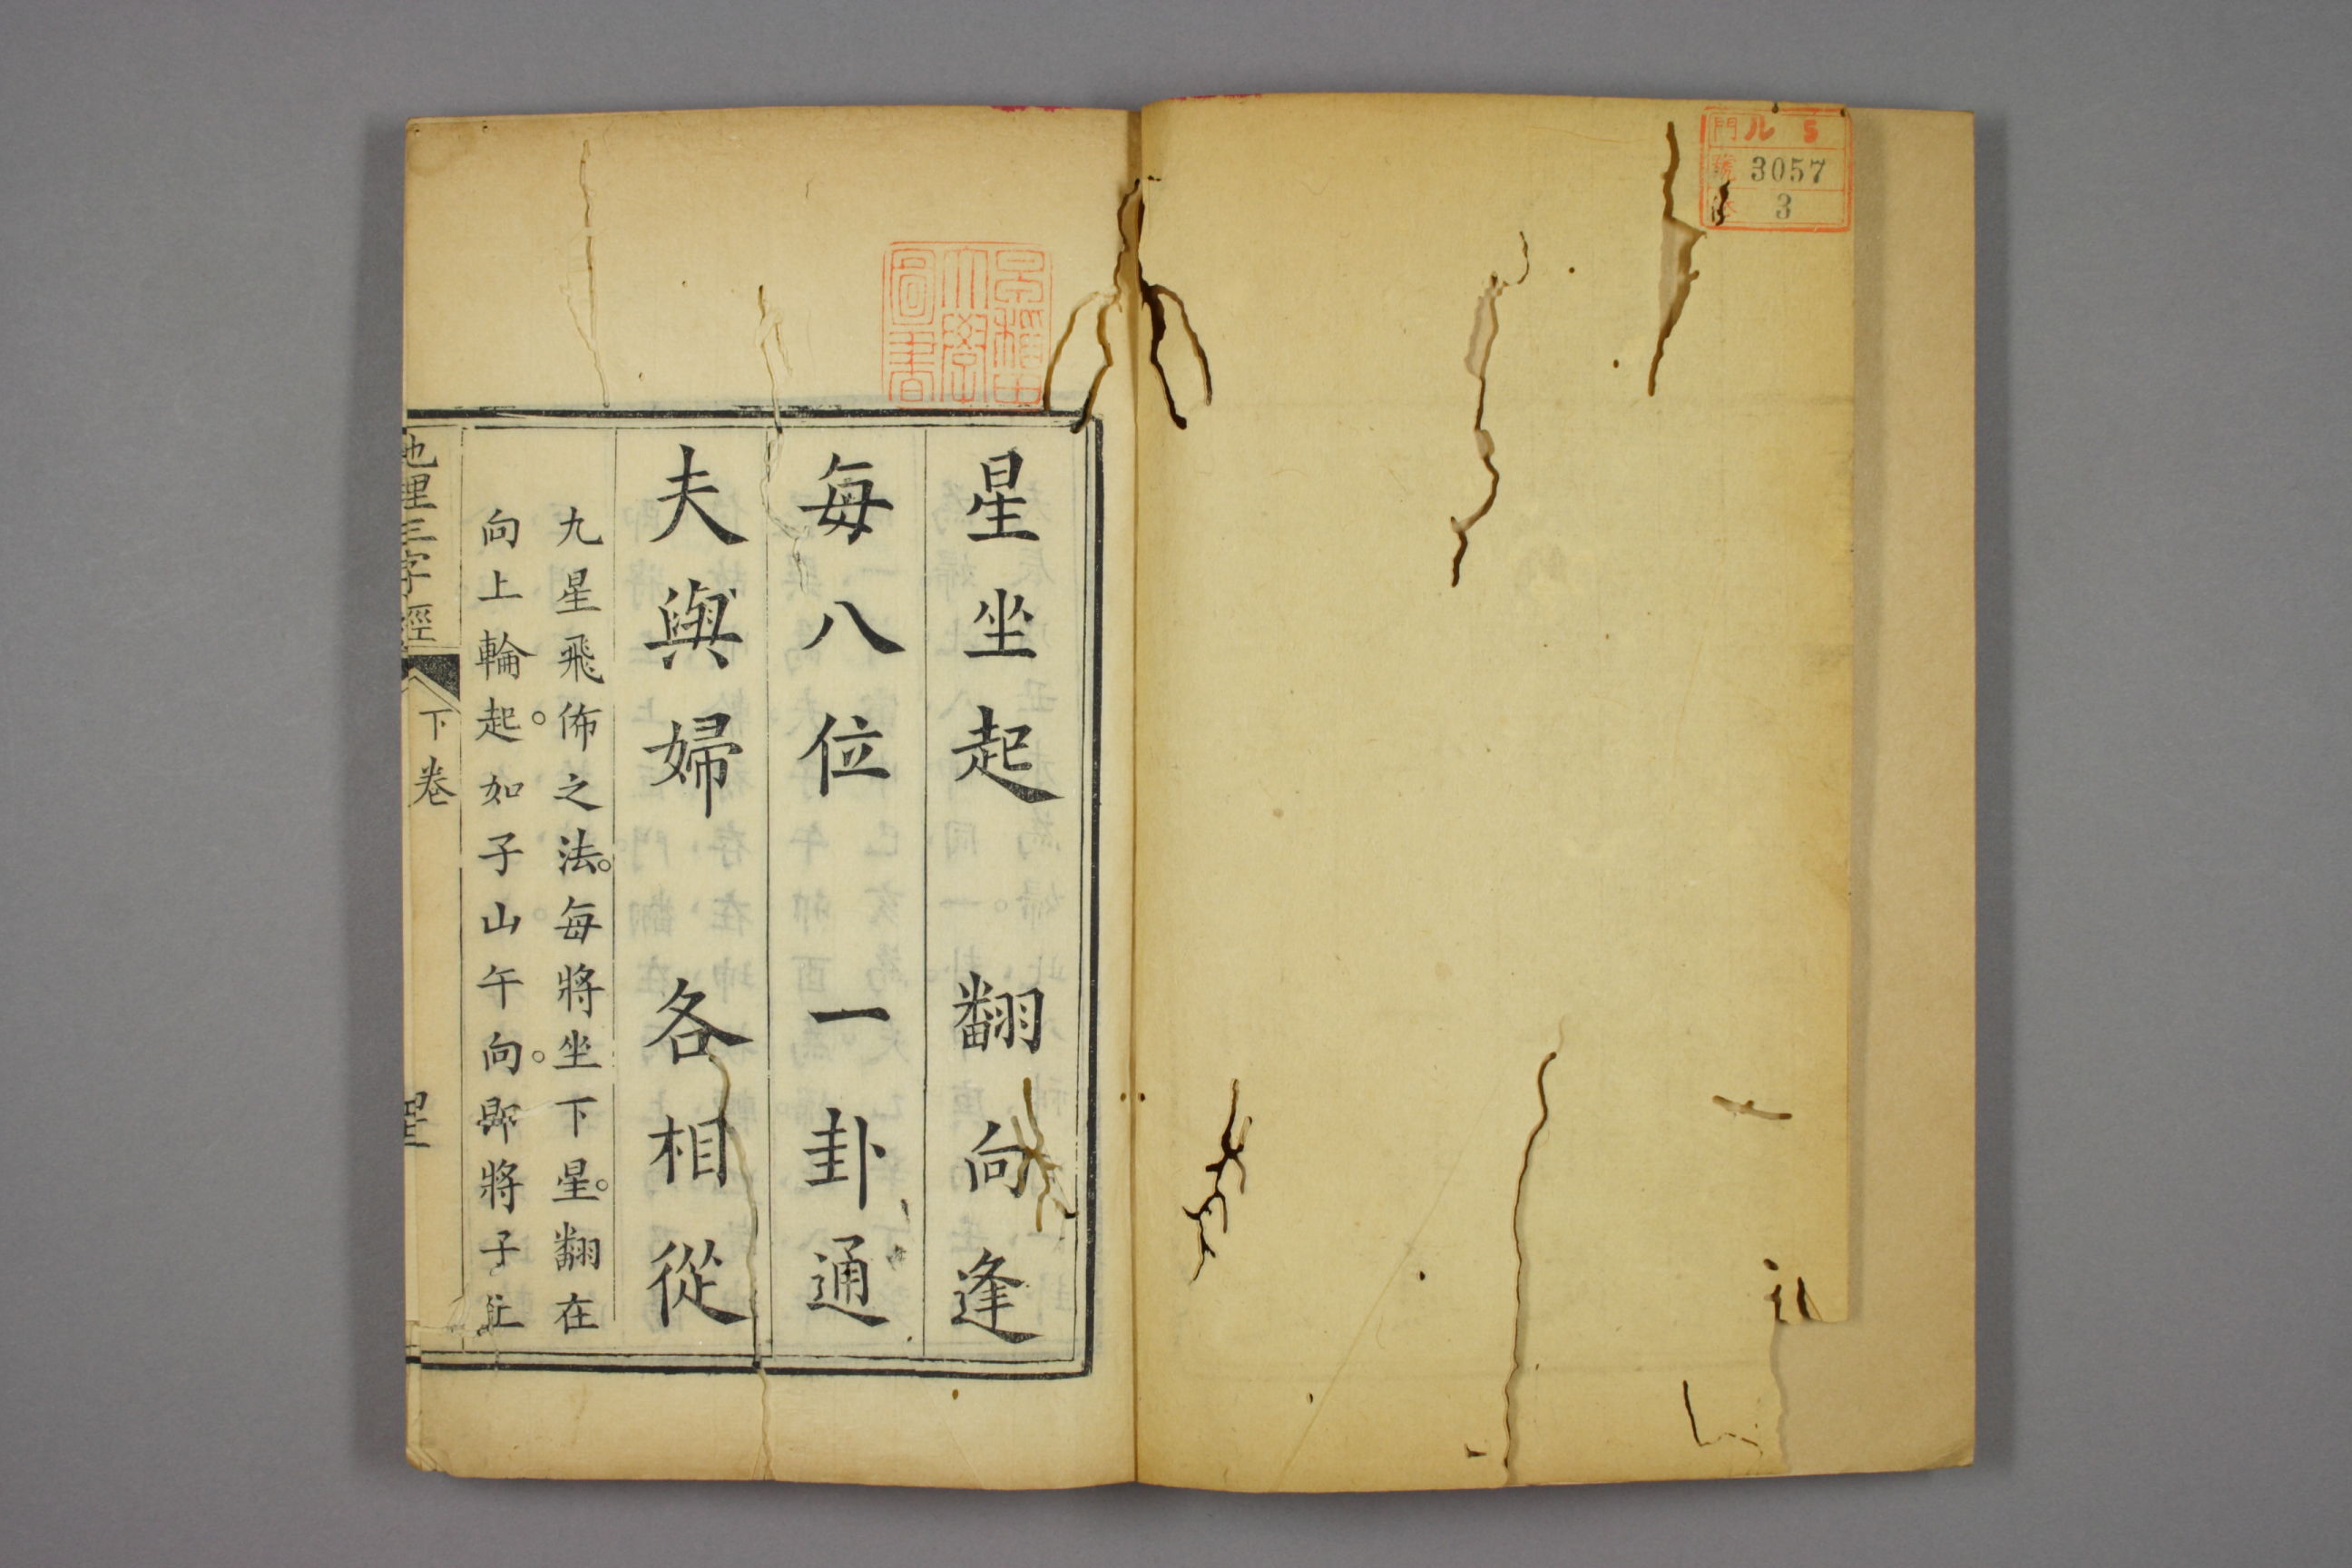 門 ル 5
號 3057
3
早稲田
大學
圖書
星坐起 翻向逢
每八位 一卦通
夫與婦 各相從
九星飛佈之法。每將坐下星。翻在
向上輪起。如子山午向。即將子上
地理三字經 下卷